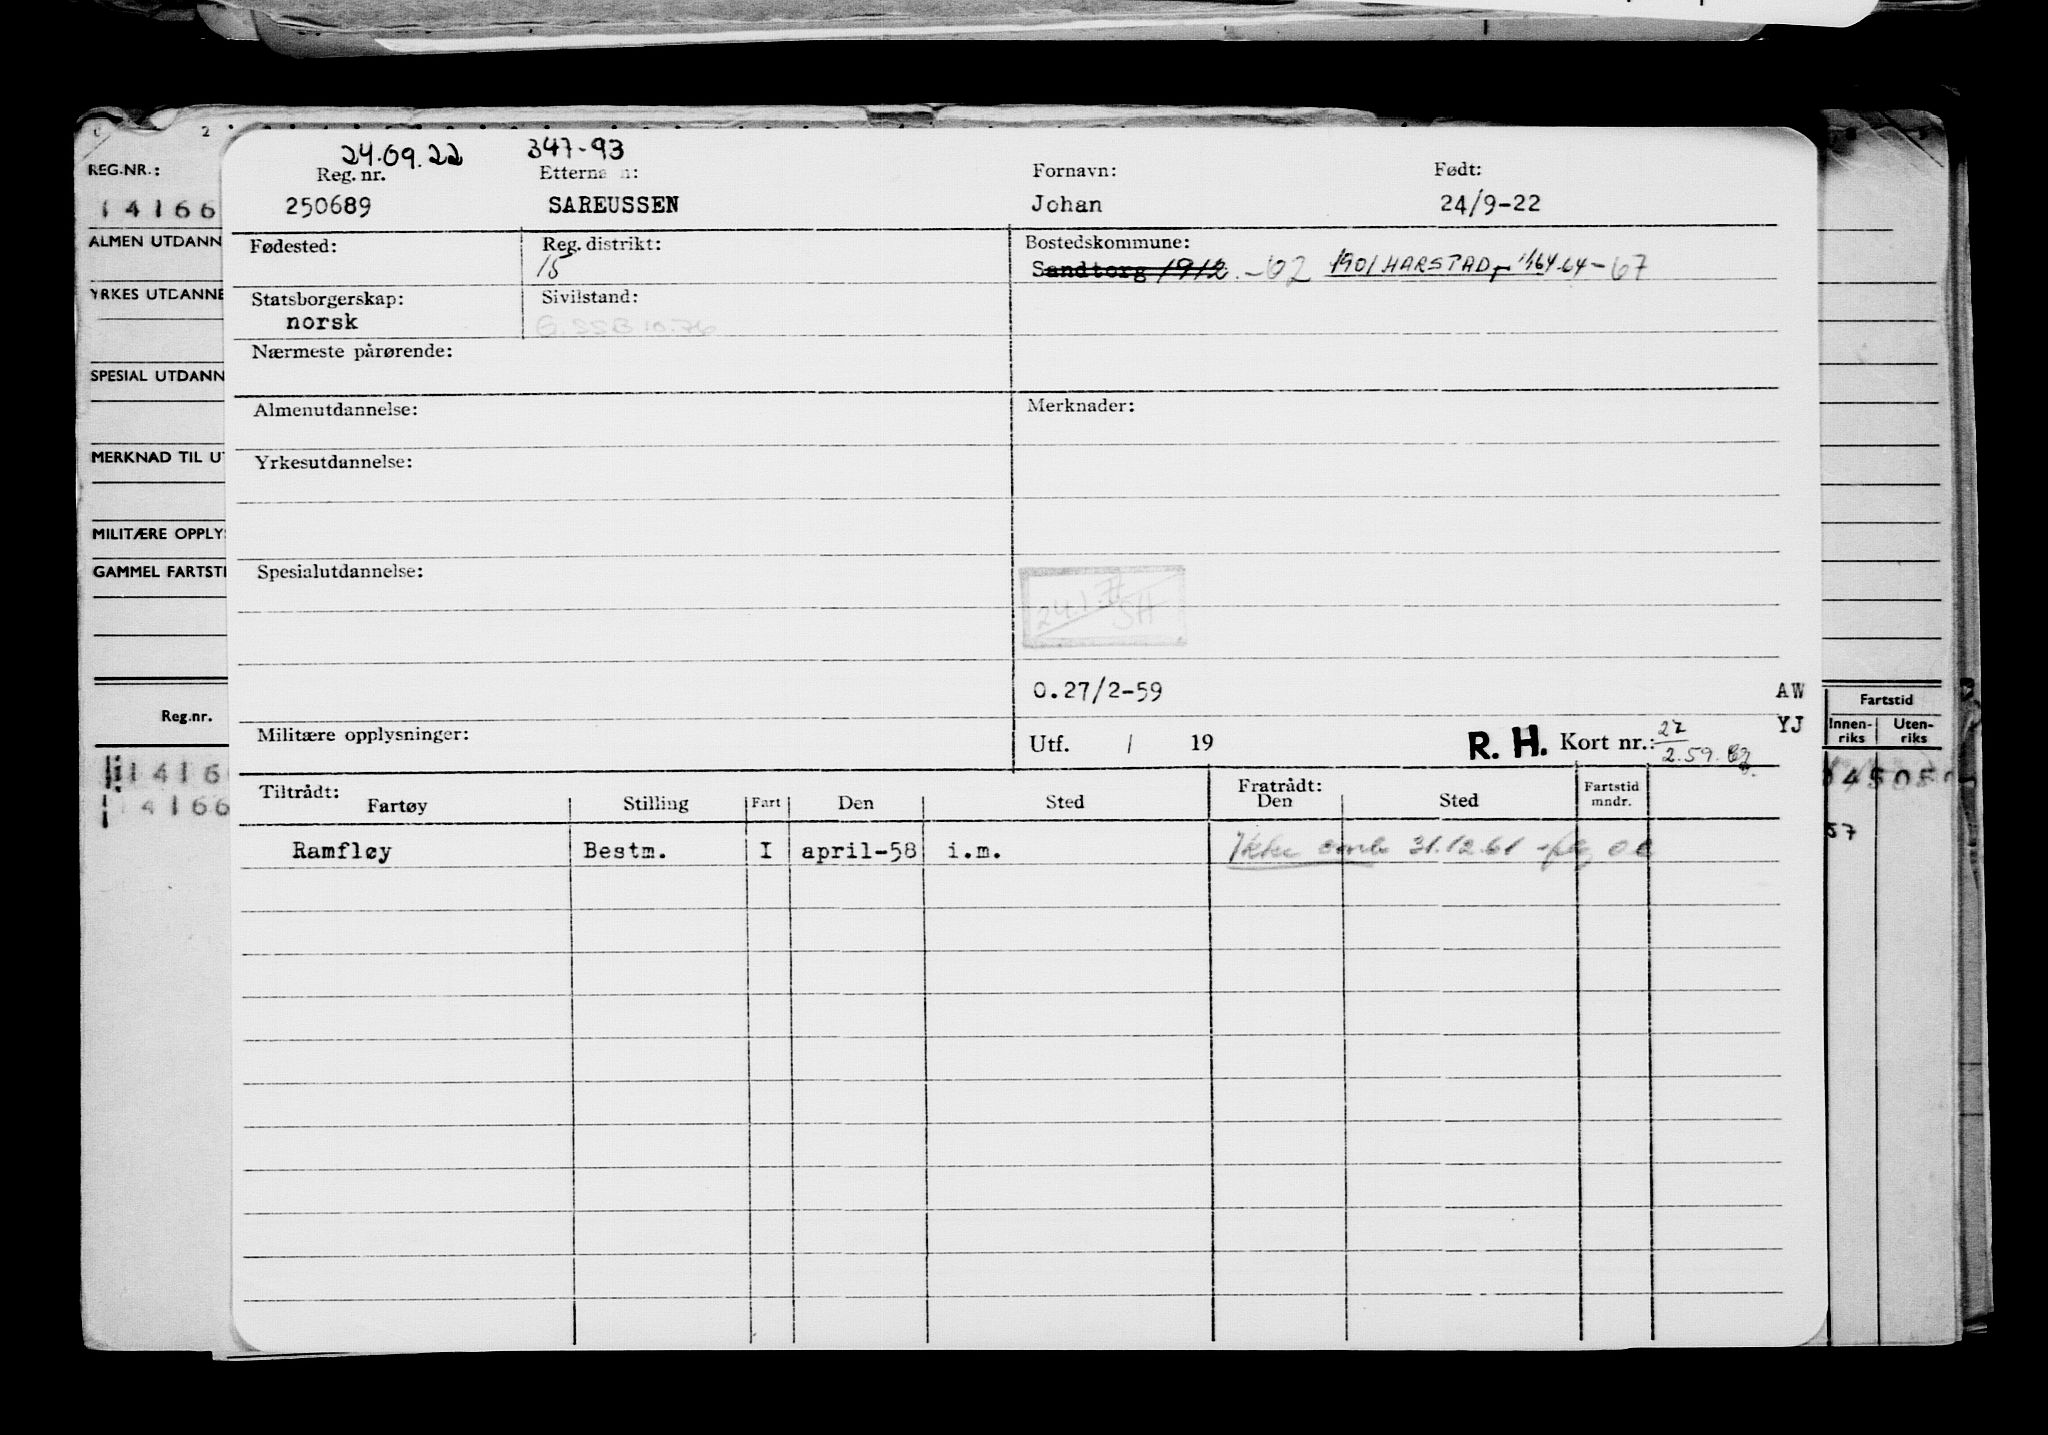 24.09.22 347-93
Reg. nr. Etterna n: Fornavn: Født:
250689 SAREUSSEN Johan 24/9-22
Fødested: Reg. distrikt: Bostedskommune:
15 Sandtorg 1912 -02 1901 HARSTAD -67
Statsborgerskap: Sivilstand:
norsk G. SSB 10.76
Nærmeste pårørende:
Almenutdannelse: Merknader:
Yrkesutdannelse:
Spesialutdannelse:
0.27/2-59 AW
Militære opplysninger: Utf. / 19 R. H. Kort nr.: 27 YJ
2.59.
Tiltrådt: Fratrådt: Fartstid
Fartøy Stilling Fart Den Sted Den Sted mndr.
Ramfløy Bestm. I april-58 i.m. Ikke 31.12.61
REG.NR.:
14166
ALMEN UTDANN
YRKES UTDANNE
SPESIAL UTDANN
MERKNAD TIL U
MILITÆRE OPPLY
GAMMEL FARTST
Reg.nr.
1416
14166
Fartstid
Innen- Uten-
riks riks
57